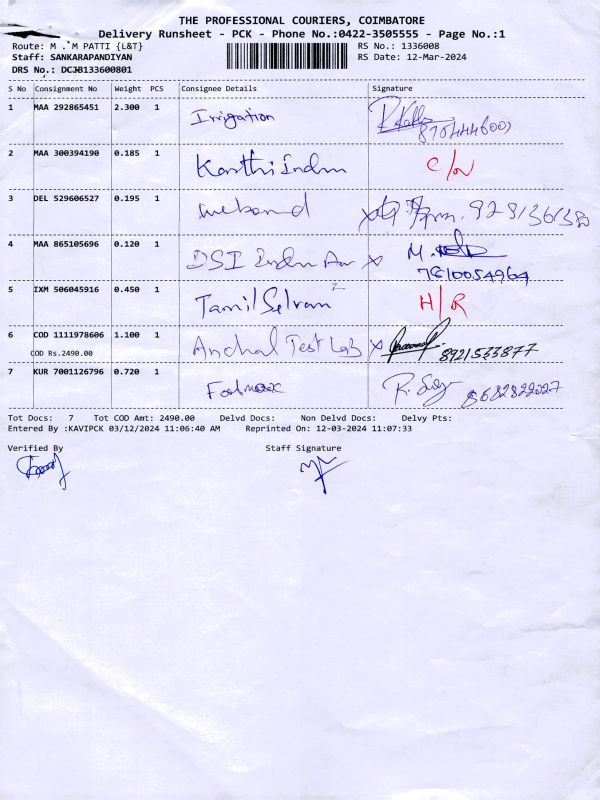 THE PROFESSIONAL COURIERS, COIMBATORE
Delivery Runsheet - PCK - Phone No.:0422-3505555 - Page No.:1
Route: M . M PATTI {L&T} RS No.: 1336008
Staff: SANKARAPANDIYAN RS Date: 12-Mar-2024
DRS No.: DCJB133600801
S No Consignment No Weight PCS Consignee Details Signature
1 MAA 292865451 2.300 1 Irrigation
2 MAA 300394190 0.185 1 Kanthi Indru C/N
3 DEL 529606527 0.195 1
4 MAA 865105696 0.120 1 DSI Indu M.
7810054964
5 IXM 506045916 0.450 1 Tamil Selvam H/R
6 COD 1111978606 1.100 1 Anchal Test Lab x 8921533877
COD Rs.2490.00
7 KUR 7001126796 0.720 1 8682822027
Tot Docs: 7 Tot COD Amt: 2490.00 Delvd Docs: Non Delvd Docs: Delvy Pts:
Entered By :KAVIPCK 03/12/2024 11:06:40 AM Reprinted On: 12-03-2024 11:07:33
Verified By Staff Signature